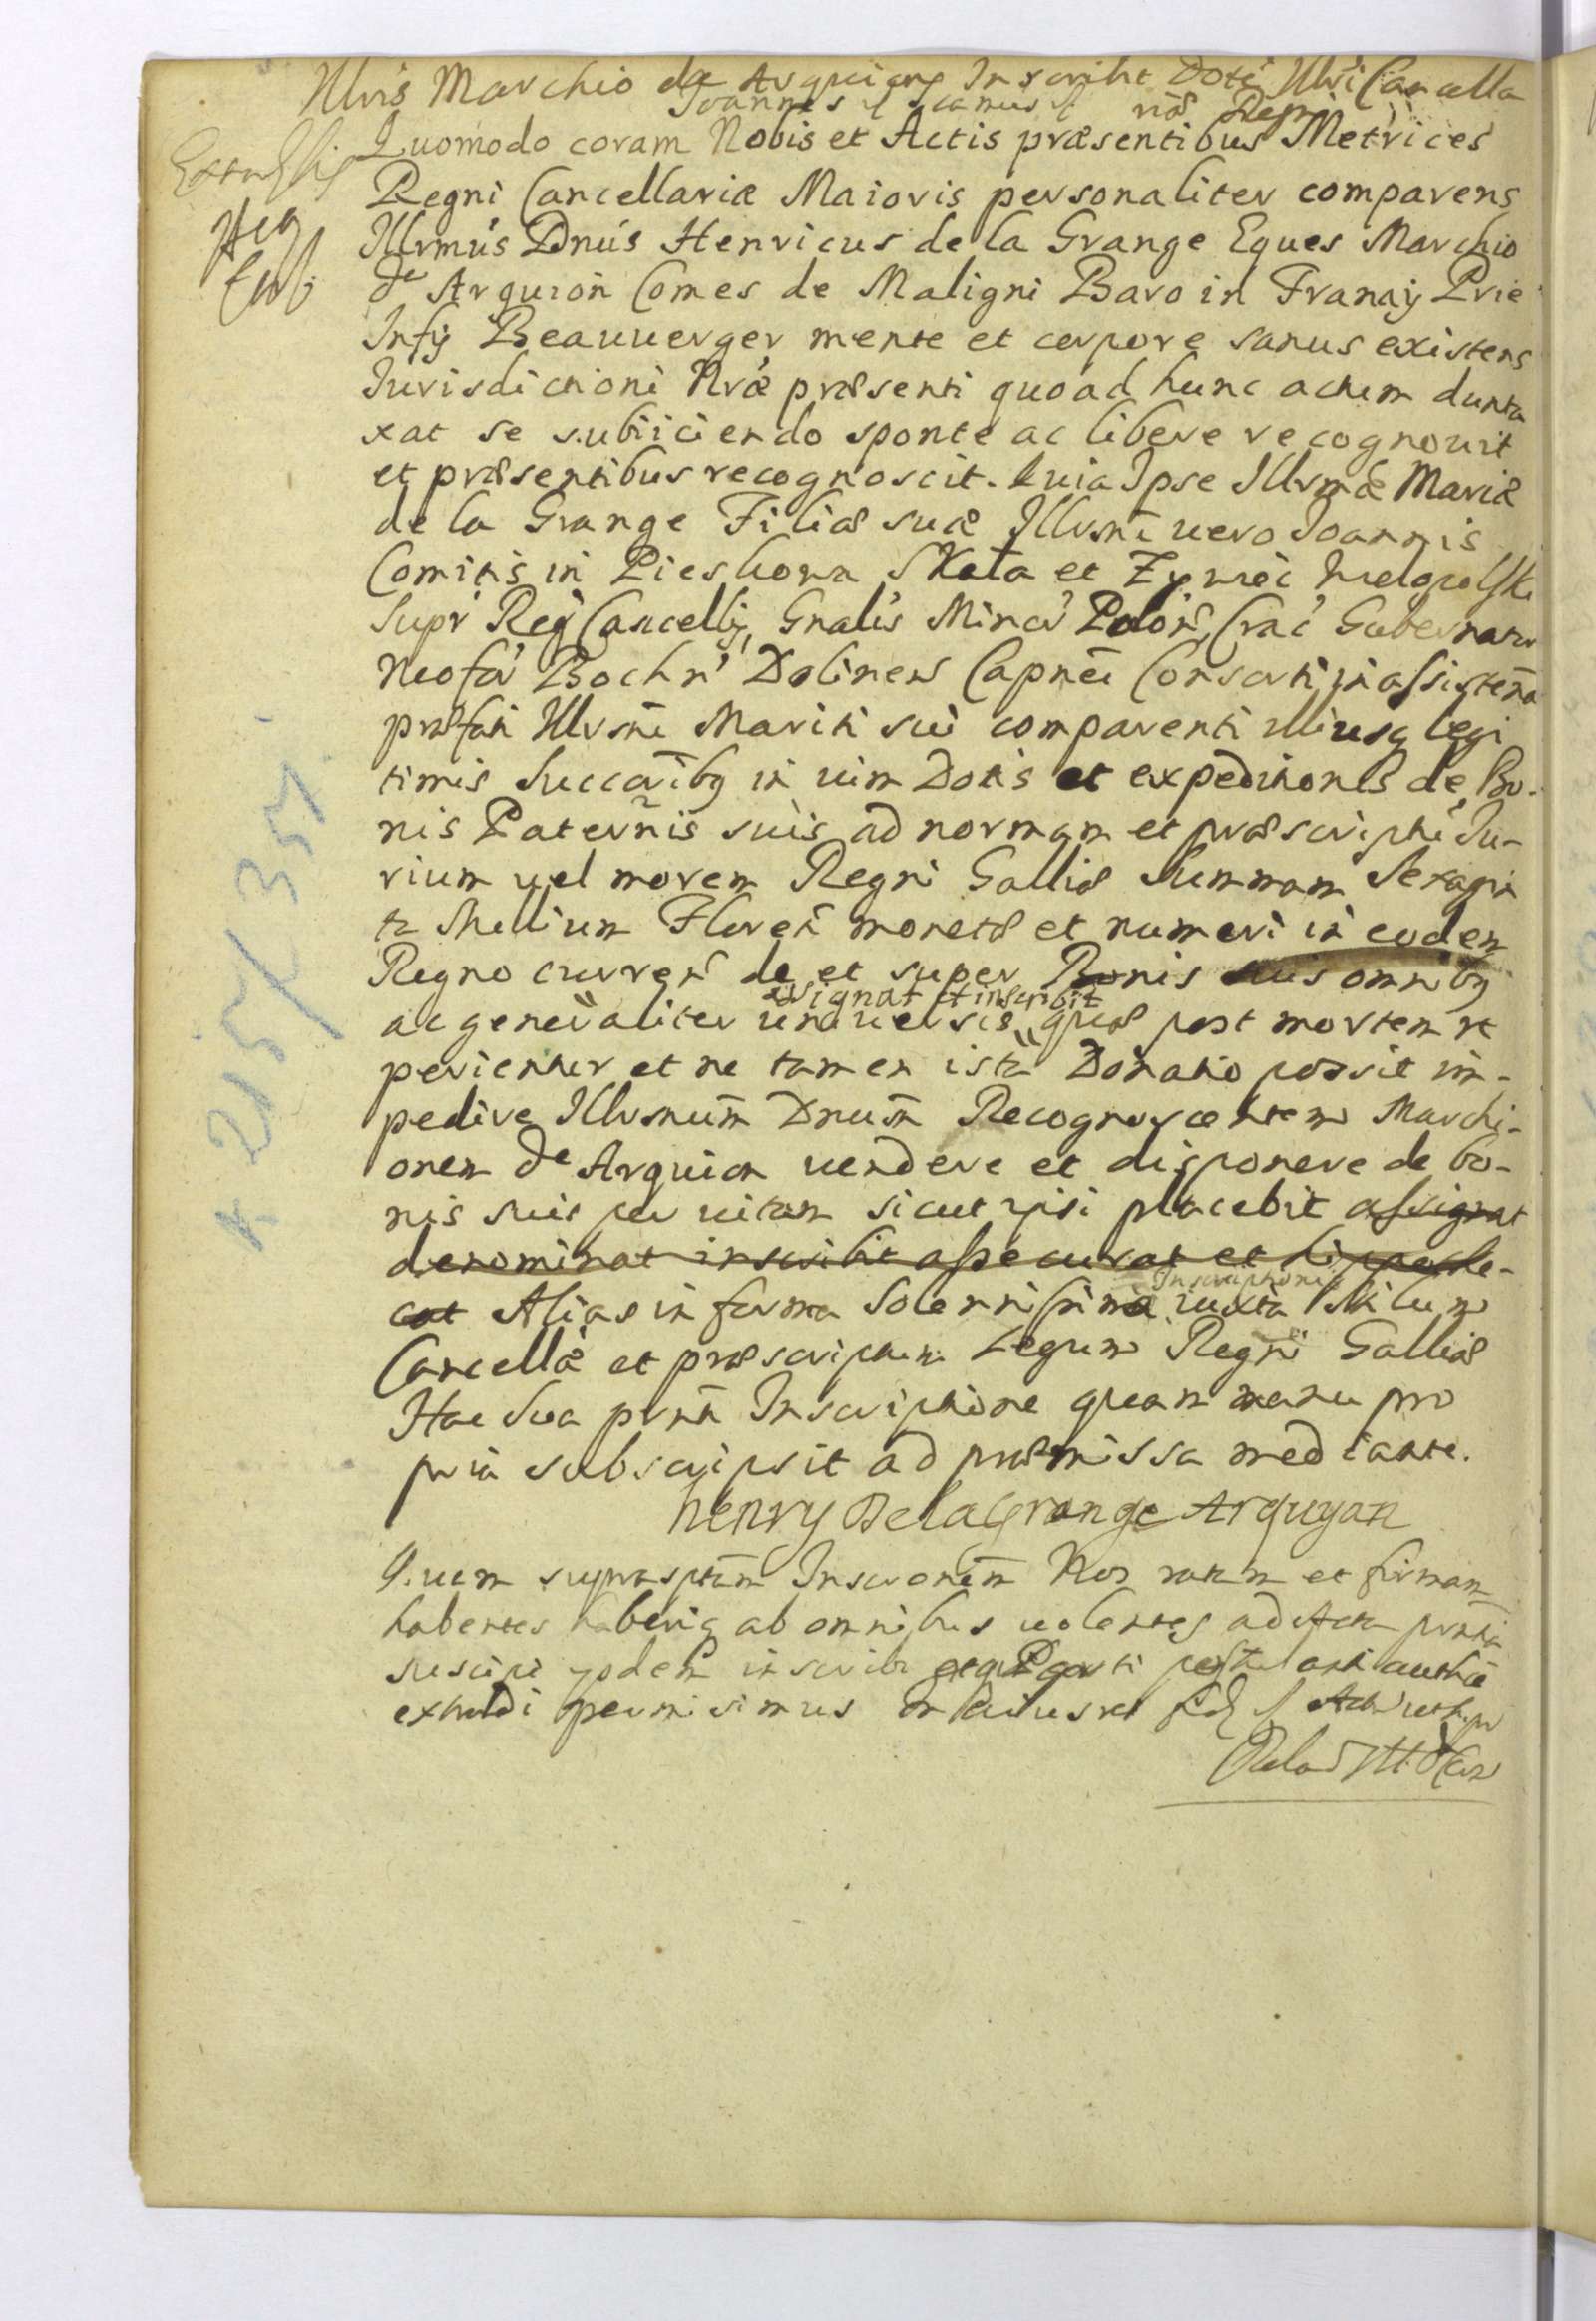 Illris Marchio de Arquiany Inscribit Dote Illri Cancella
Joannes significamus
næ Regni
Quomodo coram Nobis et Actis præsentibus Metrices
Regni Cancellariæ Maioris personaliter comparens
Illrmus Dnus Henricus de la Grange Eques Marchio
de Arquion Comes de Maligni Baro in Franaij Prie
Infy Beauuerger mente et corpore sanus existens
Jurisdictioni Nræ præsenti quoad hunc actum dunta
xat se subiiciendo sponte ac libere recognouit
et præsentibus recognoscit. Quia Ipse Illrmæ Mariæ
de la Grange Filiæ suæ Illrmi uero Joannis
Comitis in Pieskowa Skała et Zywiec Wielopolski
Supr Reg Cancellij, Gnalis Minor Polon, Crac Gubernator
Neofor Bochn Dolinens Capnei Consorti in assistena
præfati Illrmi Mariti sui comparenti illiusq legi
timis Succoribq in uim Dotis et expeditiones de Bo-
nis Paternis suis ad normam et præscripti Ju-
rium uel morem Regni Galliæ Summam Sexagin
ta Millium Floren monetæ et numeri in eodem
Regno curren de et super Bonis suis omnibq
assignat et inscribit
ac generaliter uniuersis quæ post mortem re
perientur et ne tamen ista Donatio possit im-
pedire Illrmum Dnum Recognoscentem Marchi-
onem de Arquian uendere et disponere de bo-
nis suis per uitam sicut ipsi placebit assignat
denominat inscribit assecurat et hippothe-
cat Alias in forma Solennissima iuxta Stilum
Inscriptionis
Cancellæ et præscriptum Legum Regni Galliæ
Hac Sua prnti Inscriptione quam manu pro
pria subscripsit ad præmissa mediante.
Henry De la Grange Arquyan
Quam suprasptam Inscronem Nos ratam et firmam
habentes haberiq ab omnibus uolentes ad Acta prntia
suscipi ijsdem inscribi
extradi permisimus In cuius rei